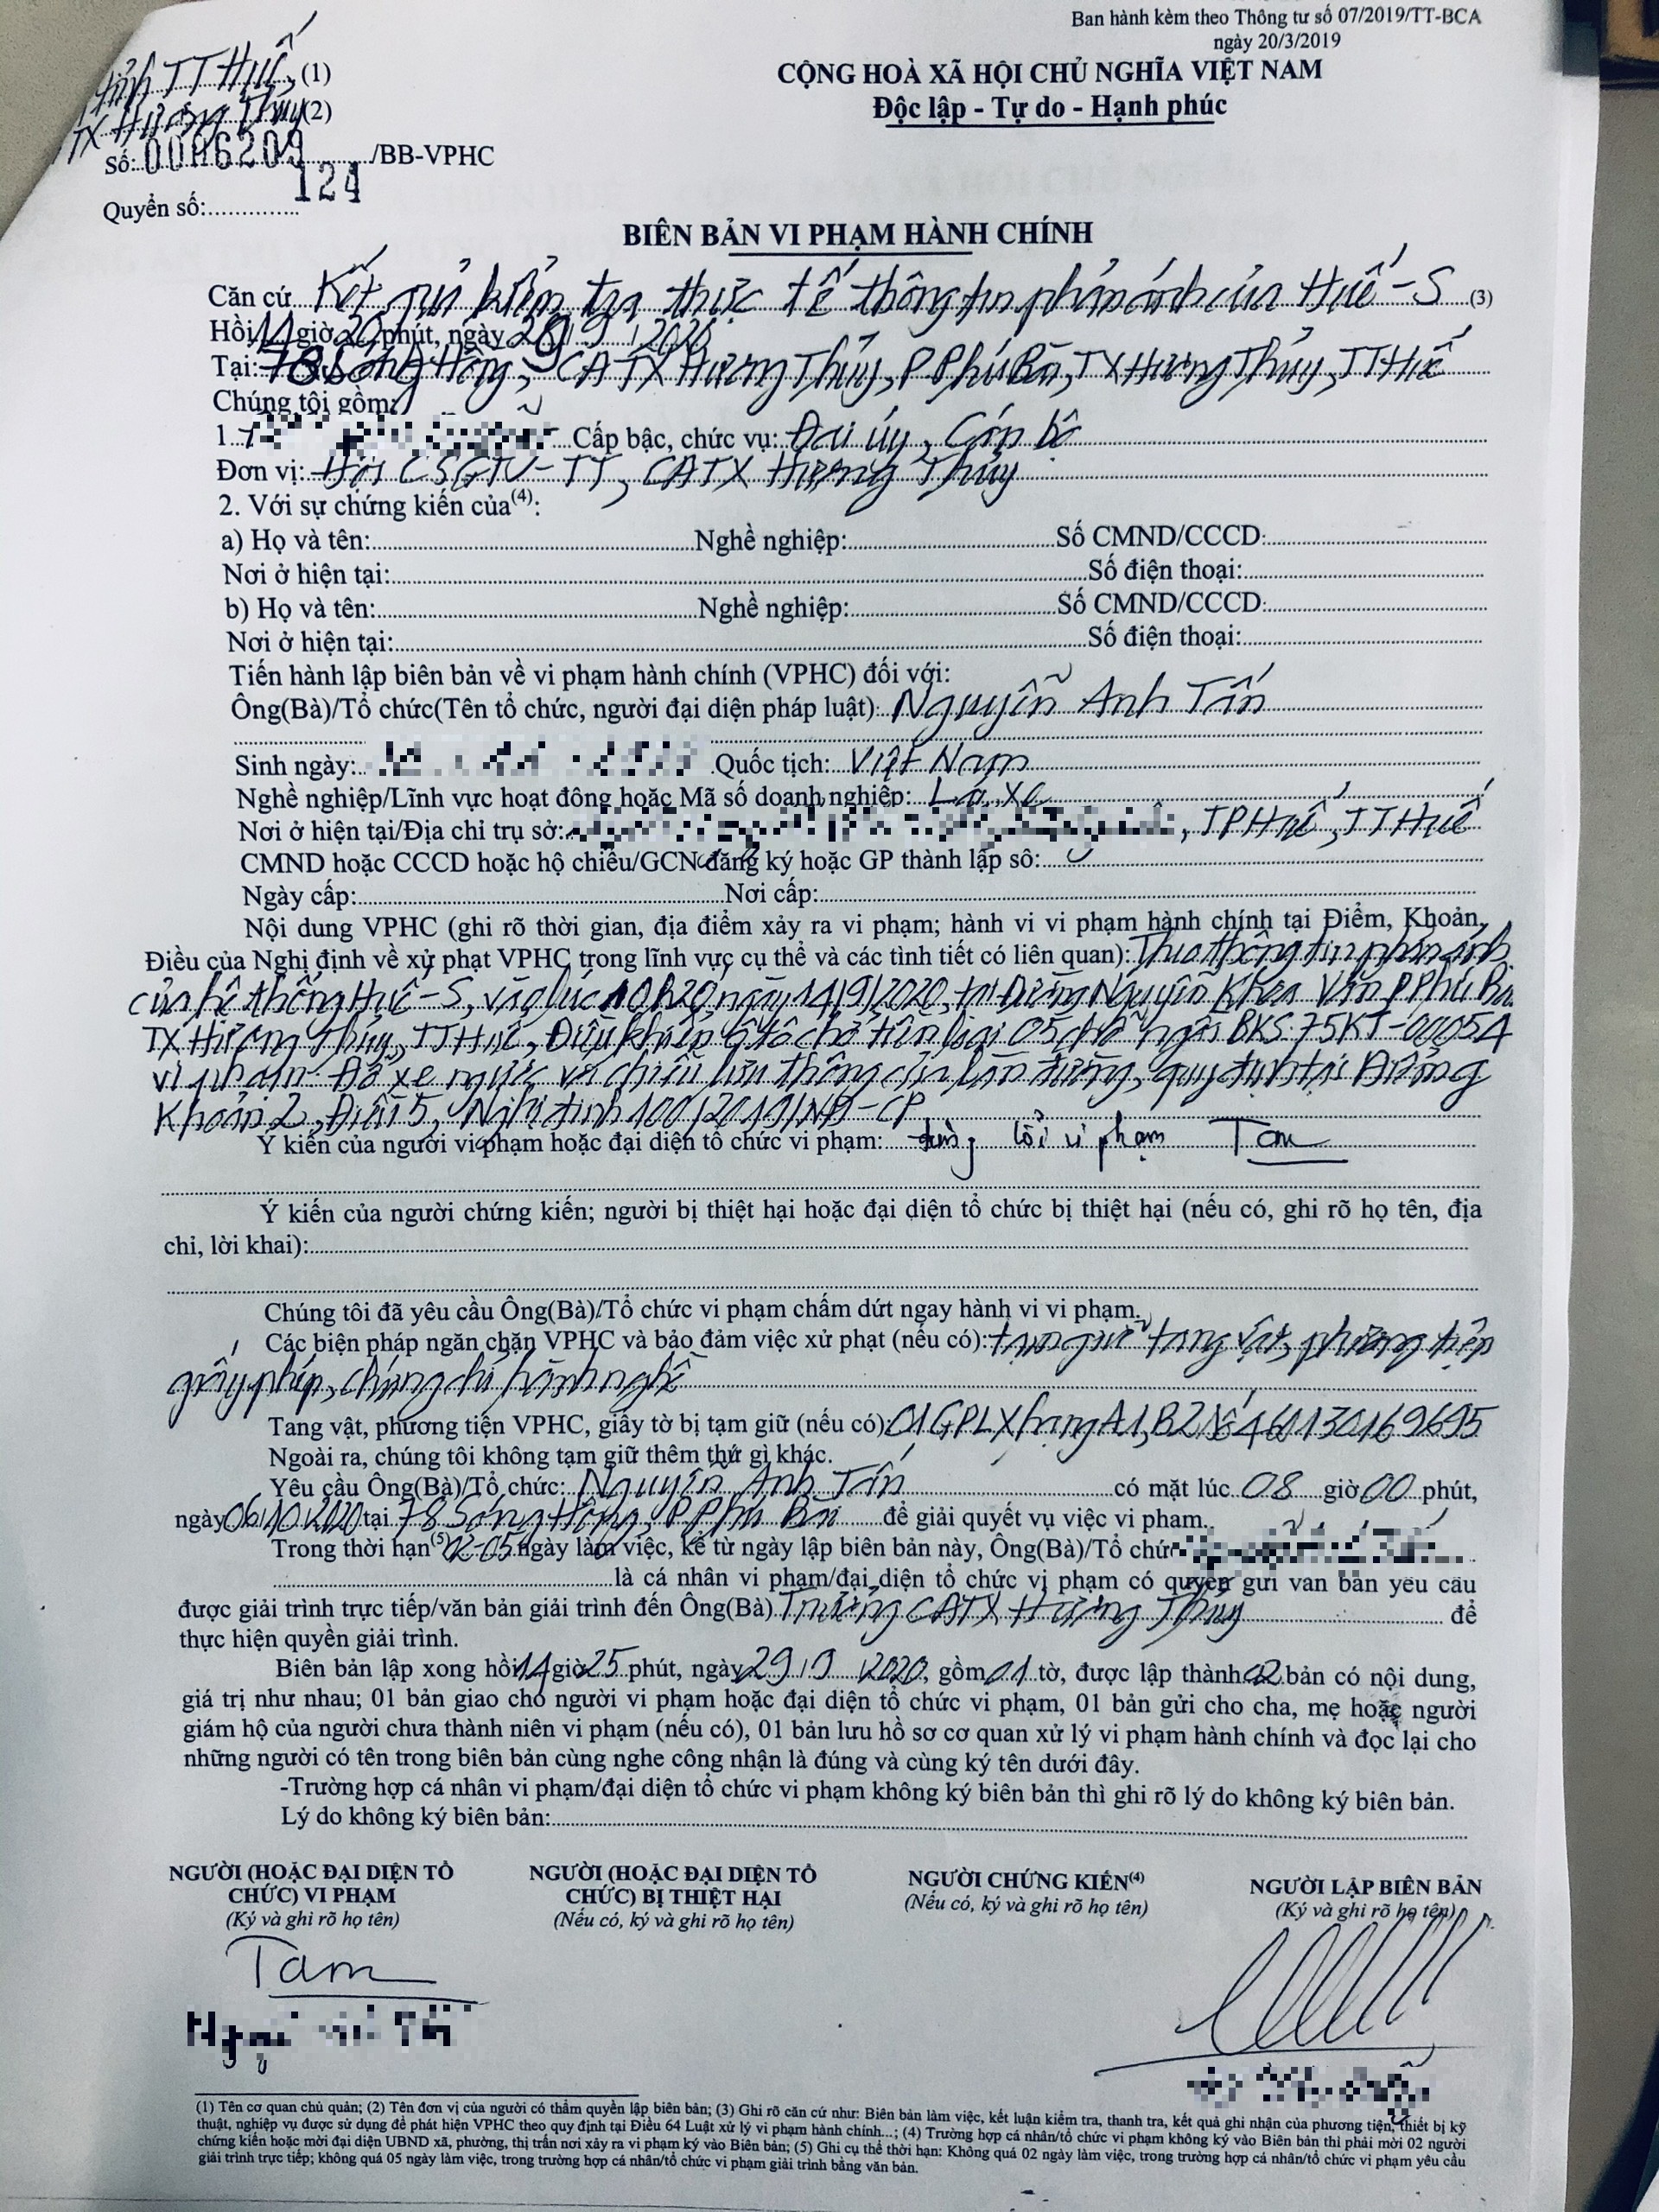 Ban hành kèm theo Thông tư số 07/2019/TT-BCA
ngày 20/3/2019
CỘNG HOÀ XÃ HỘI CHỦ NGHĨA VIỆT NAM
Độc lập - Tự do - Hạnh phúc
tỉnh TT Huế (1)
TX Hương Thủy (2)
Số: /BB-VPHC
Quyển số: 124
BIÊN BẢN VI PHẠM HÀNH CHÍNH
Căn cứ Kết quả kiểm tra thực tế thông tin phản ánh của Huế-S (3)
Hồi 14 giờ 20 phút, ngày 29/9/2020
Tại: 78 Sóng Hồng, CATX Hương Thủy, P Phú Bài, TX Hương Thủy, TT Huế
Chúng tôi gồm:
1. Cấp bậc, chức vụ: Đại úy, Cán bộ
Đơn vị: Đội CSGT-TT, CATX Hương Thủy
2. Với sự chứng kiến của(4):
a) Họ và tên: Nghề nghiệp: Số CMND/CCCD:
Nơi ở hiện tại: Số điện thoại:
b) Họ và tên: Nghề nghiệp: Số CMND/CCCD:
Nơi ở hiện tại: Số điện thoại:
Tiến hành lập biên bản về vi phạm hành chính (VPHC) đối với:
Ông(Bà)/Tổ chức(Tên tổ chức, người đại diện pháp luật): Nguyễn Anh Tấn
Sinh ngày: Quốc tịch: Việt Nam
Nghề nghiệp/Lĩnh vực hoạt động hoặc Mã số doanh nghiệp: Lái xe
Nơi ở hiện tại/Địa chỉ trụ sở: , TP Huế, TT Huế
CMND hoặc CCCD hoặc hộ chiếu/GCN đăng ký hoặc GP thành lập số:
Ngày cấp: Nơi cấp:
Nội dung VPHC (ghi rõ thời gian, địa điểm xảy ra vi phạm; hành vi vi phạm hành chính tại Điểm, Khoản,
Điều của Nghị định về xử phạt VPHC trong lĩnh vực cụ thể và các tình tiết có liên quan): Theo thông tin phản ánh
của hệ thống Huế-S, vào lúc 10h20, ngày 14/9/2020, tại Đường Nguyễn Khoa Văn, P Phú Bài
TX Hương Thủy, TT Huế, Điều khiển ô tô chở tiền loại 05 chỗ ngồi BKS: 75KT-00054
vi phạm: Đỗ xe ngược với chiều lưu thông của làn đường, quy định tại Điểm g
Khoản 2, Điều 5, Nghị định 100/2019/NĐ-CP
Ý kiến của người vi phạm hoặc đại diện tổ chức vi phạm: đúng lỗi vi phạm
Ý kiến của người chứng kiến; người bị thiệt hại hoặc đại diện tổ chức bị thiệt hại (nếu có, ghi rõ họ tên, địa
chỉ, lời khai):
Chúng tôi đã yêu cầu Ông(Bà)/Tổ chức vi phạm chấm dứt ngay hành vi vi phạm.
Các biện pháp ngăn chặn VPHC và bảo đảm việc xử phạt (nếu có): tạm giữ tang vật, phương tiện
giấy phép, chứng chỉ hành nghề
Tang vật, phương tiện VPHC, giấy tờ bị tạm giữ (nếu có): 01 GPLX hạng A1, B2 số 460130169695
Ngoài ra, chúng tôi không tạm giữ thêm thứ gì khác.
Yêu cầu Ông(Bà)/Tổ chức: Nguyễn Anh Tấn có mặt lúc 08 giờ 00 phút,
ngày 06/10/2020 tại 78 Sóng Hồng, P Phú Bài để giải quyết vụ việc vi phạm.
Trong thời hạn(5) 02-05 ngày làm việc, kể từ ngày lập biên bản này, Ông(Bà)/Tổ chức
là cá nhân vi phạm/đại diện tổ chức vi phạm có quyền gửi văn bản yêu cầu
được giải trình trực tiếp/văn bản giải trình đến Ông(Bà) Trưởng CATX Hương Thủy để
thực hiện quyền giải trình.
Biên bản lập xong hồi 14 giờ 25 phút, ngày 29/9/2020, gồm 01 tờ, được lập thành 02 bản có nội dung,
giá trị như nhau; 01 bản giao cho người vi phạm hoặc đại diện tổ chức vi phạm, 01 bản gửi cho cha, mẹ hoặc người
giám hộ của người chưa thành niên vi phạm (nếu có), 01 bản lưu hồ sơ cơ quan xử lý vi phạm hành chính và đọc lại cho
những người có tên trong biên bản cùng nghe công nhận là đúng và cùng ký tên dưới đây.
-Trường hợp cá nhân vi phạm/đại diện tổ chức vi phạm không ký biên bản thì ghi rõ lý do không ký biên bản.
Lý do không ký biên bản:
NGƯỜI (HOẶC ĐẠI DIỆN TỔ
CHỨC) VI PHẠM
(Ký và ghi rõ họ tên)
NGƯỜI (HOẶC ĐẠI DIỆN TỔ
CHỨC) BỊ THIỆT HẠI
(Nếu có, ký và ghi rõ họ tên)
NGƯỜI CHỨNG KIẾN(4)
(Nếu có, ký và ghi rõ họ tên)
NGƯỜI LẬP BIÊN BẢN
(Ký và ghi rõ họ tên)
(1) Tên cơ quan chủ quản; (2) Tên đơn vị của người có thẩm quyền lập biên bản; (3) Ghi rõ căn cứ như: Biên bản làm việc, kết luận kiểm tra, thanh tra, kết quả ghi nhận của phương tiện, thiết bị kỹ
thuật, nghiệp vụ được sử dụng để phát hiện VPHC theo quy định tại Điều 64 Luật xử lý vi phạm hành chính...; (4) Trường hợp cá nhân/tổ chức vi phạm không ký vào Biên bản thì phải mời 02 người
chứng kiến hoặc mời đại diện UBND xã, phường, thị trấn nơi xảy ra vi phạm ký vào Biên bản; (5) Ghi cụ thể thời hạn: Không quá 02 ngày làm việc, trong trường hợp cá nhân/tổ chức vi phạm yêu cầu
giải trình trực tiếp; không quá 05 ngày làm việc, trong trường hợp cá nhân/tổ chức vi phạm giải trình bằng văn bản.